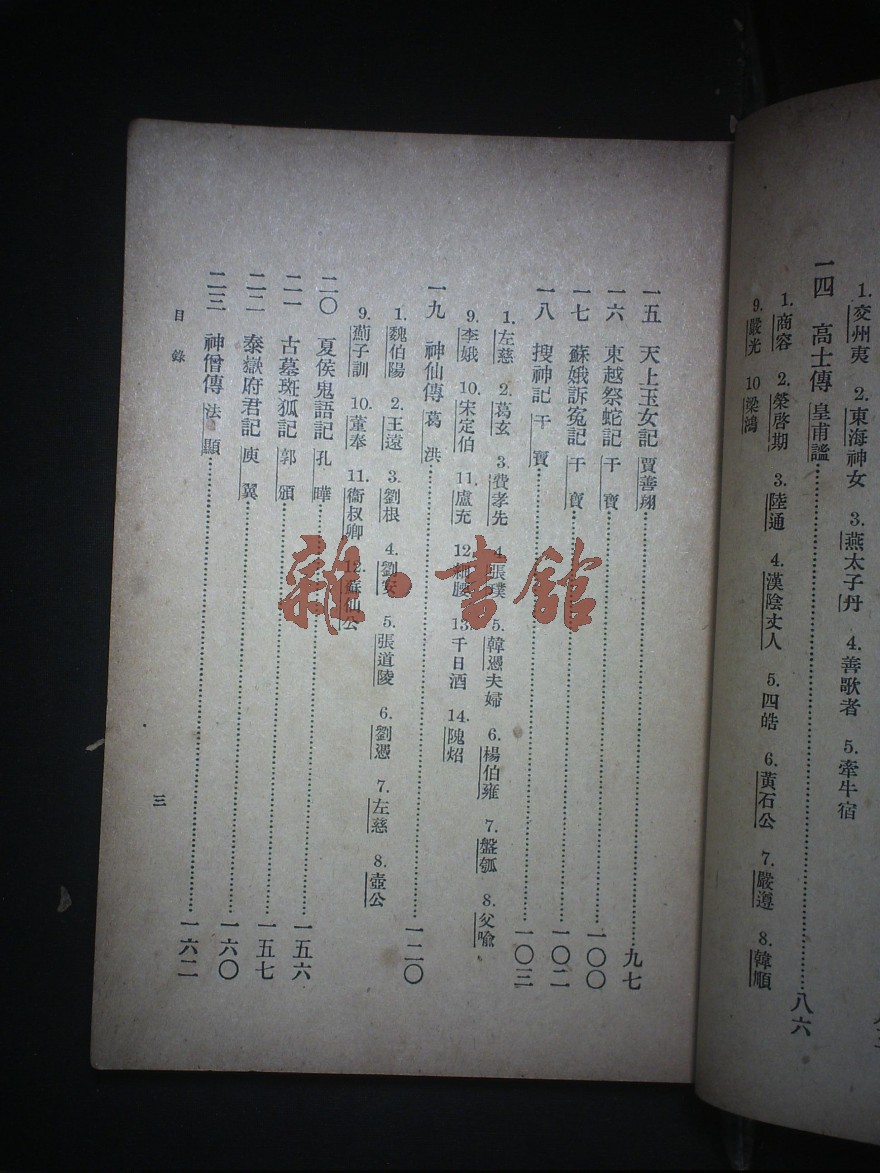 1. 交州夷 2. 東海神女 3. 燕太子丹 4. 善歌者 5. 牽牛宿
一四 高士傳 皇甫謐 八六
1. 商容 2. 榮啓期 3. 陸通 4. 漢陰丈人 5. 四皓 6. 黃石公 7. 嚴遵 8. 韓順
9. 嚴光 10 梁鴻
一五 天上玉女記 賈善翔 九七
一六 東越祭蛇記 干寶 一〇〇
一七 蘇娥訴冤記 干寶 一〇二
一八 搜神記 干寶 一〇三
1. 左慈 2. 葛玄 3. 費孝先 4. 張璞 5. 韓憑夫婦 6. 楊伯雍 7. 盤瓠 8. 父喩
9. 李娥 10. 宋定伯 11. 盧充 12. 細腰 13. 千日酒 14. 隗炤
一九 神仙傳 葛洪 一二〇
1. 魏伯陽 2. 王遠 3. 劉根 4. 劉安 5. 張道陵 6. 劉憑 7. 左慈 8. 壺公
9. 薊子訓 10. 董奉 11. 衞叔卿 12. 蘇仙公
二〇 夏侯鬼語記 孔曄 一五六
二一 古墓斑狐記 郭頒 一五七
二二 泰嶽府君記 庾翼 一六〇
二三 神僧傳 法顯 一六二
目錄
三
雜·書館